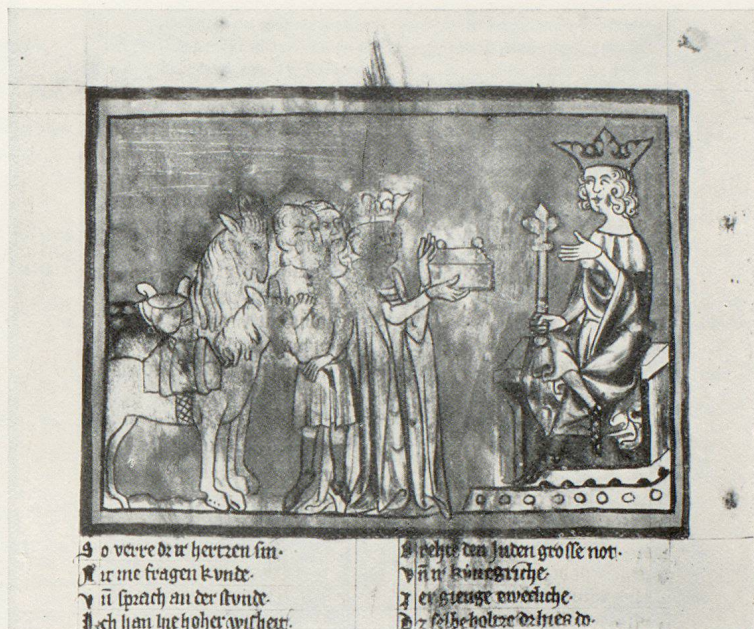 So verre dz ir hertzen sin·
Nit me fragen kvnde·
vn̄ sprach an der stvnde·
Ich han hie hoher wisheit·
Brehte den Juden grosse not·
vn̄ ir künegriche·
Zergienge ewecliche·
Dz selbe holtze dz hies do·